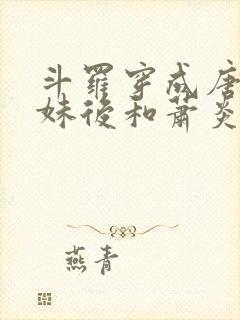 斗羅穿成唐
妹後和蕭炎
燕青